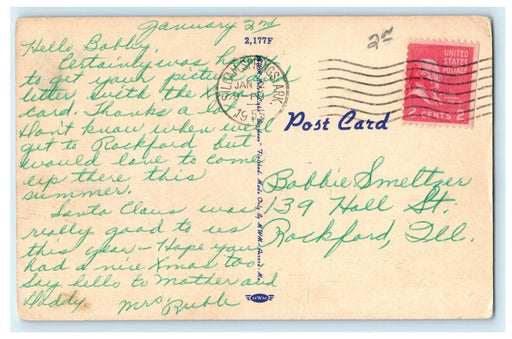 January 2nd
2,177F
Hello Bobby,
Certainly was
to get your picture and
letter with the Xmas
card. Thanks a lot.
Don't know when we'll
get to Rockford but
would love to come
up there this
summer.
Santa Claus was
really good to us
this year - Hope you
had a nice Xmas too
Say hello to Mother and
Daddy.
Mrs Ruble
SILOAM SPRINGS, ARK.
JAN
UNITED
STATES
POSTAGE
2 CENTS 2
Post Card
Bobbie Smeltzer
139 Hall St.
Rockford, Ill.
MWM